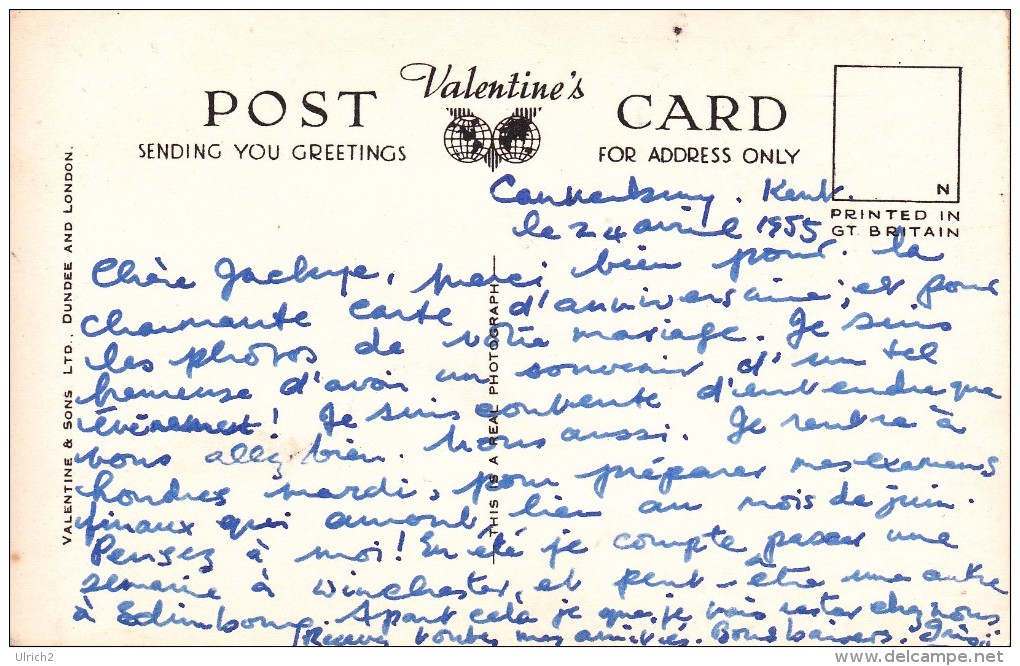 Valentine's
POST CARD
SENDING YOU GREETINGS
FOR ADDRESS ONLY
N
PRINTED IN
GT. BRITAIN
VALENTINE & SONS LTD., DUNDEE AND LONDON.
THIS IS A REAL PHOTOGRAPH
Kent.
le 24 avril 1955
Chère merci bien pour la
charmante carte d'anniversaire, et pour
les photos de votre mariage. Je suis
heureuse d'avoir un souvenir d'un tel
évènement! Je suis contente d'entendre que
vous allez bien. Nous aussi. Je rentre à
Londres mardi, pour préparer mes examens
finaux qui auront lieu au mois de juin.
Pensez à moi! En été je compte passer une
semaine à Winchester, et peut-être une autre
à Edimbourg. Apart cela je je vais rester chez nous
Recevez toutes mes amitiés. Bons baisers.
Ulrich2
http://www.delcampe.net